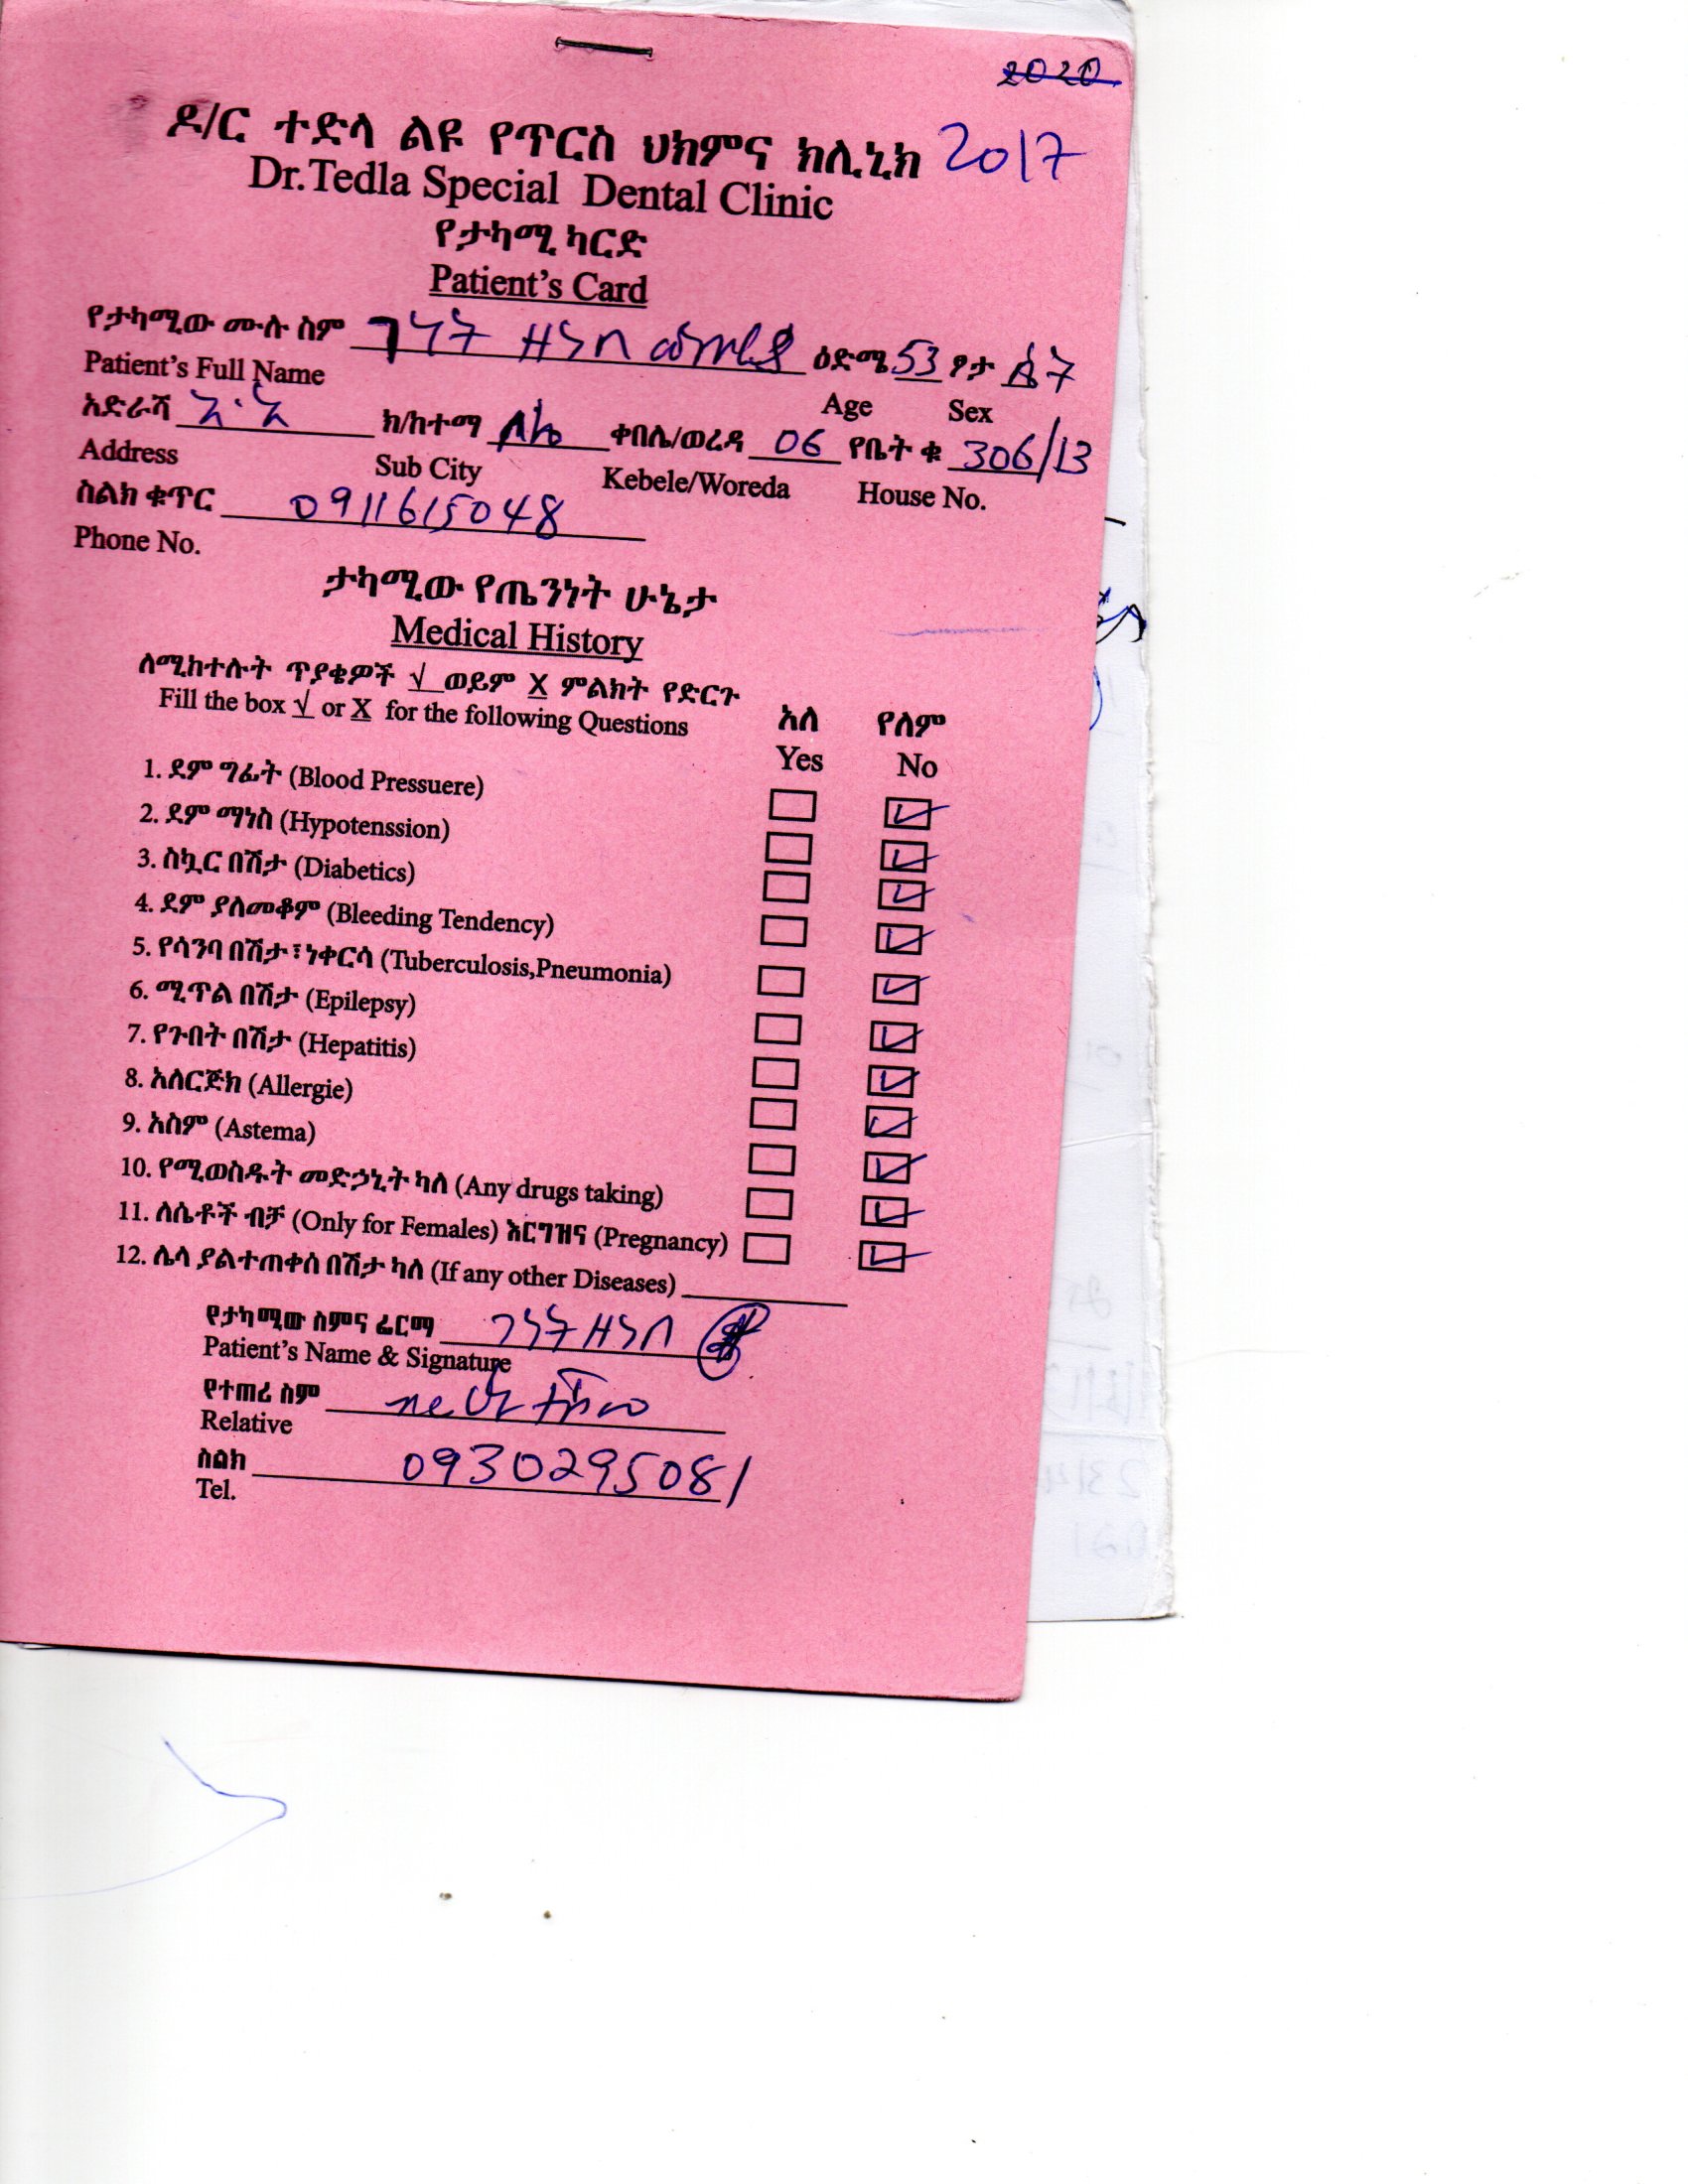 2020
ዶ/ር ተድላ ልዩ የጥርስ ህክምና ክሊኒክ 2017
Dr.Tedla Special Dental Clinic
የታካሚ ካርድ
Patient's Card
የታካሚው ሙሉ ስም ገነት ዘነበ ዕድሜ 53 ፆታ ሴት
Patient's Full Name Age Sex
አድራሻ አ.አ ክ/ከተማ ቦሌ ቀበሌ/ወረዳ 06 የቤት ቁ 306/13
Address Sub City Kebele/Woreda House No.
ስልክ ቁጥር 0911615048
Phone No.
ታካሚው የጤንነት ሁኔታ
Medical History
ለሚከተሉት ጥያቄዎች √ ወይም X ምልክት የድርጉ
Fill the box √ or X for the following Questions
አለ የለም
Yes No
1. ደም ግፊት (Blood Pressuere)
2. ደም ማነስ (Hypotenssion)
3. ስኳር በሽታ (Diabetics)
4. ደም ያለመቆም (Bleeding Tendency)
5. የሳንባ በሽታ፣ነቀርሳ (Tuberculosis,Pneumonia)
6. ሚጥል በሽታ (Epilepsy)
7. የጉበት በሽታ (Hepatitis)
8. አለርጅክ (Allergie)
9. አስም (Astema)
10. የሚወስዱት መድኃኒት ካለ (Any drugs taking)
11. ለሴቶች ብቻ (Only for Females) እርግዝና (Pregnancy)
12. ሌላ ያልተጠቀሰ በሽታ ካለ (If any other Diseases)
የታካሚው ስምና ፊርማ ገነት ዘነበ
Patient's Name & Signature
የተጠሪ ስም
Relative
ስልክ 0930295081
Tel.